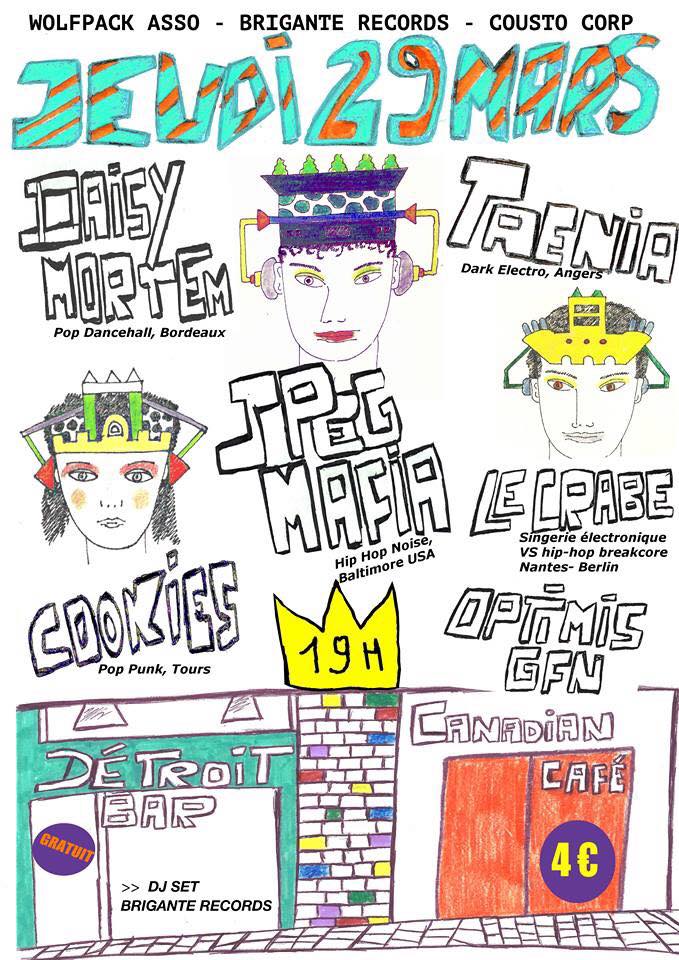 WOLFPACK ASSO - BRIGANTE RECORDS - COUSTO CORP
JEUDI 29 MARS
DAISY
MORTEM
Pop Dancehall, Bordeaux
TAENIA
Dark Electro, Angers
JPEG
MAFIA
Hip Hop Noise,
Baltimore USA
LE CRABE
Singerie électronique
VS hip-hop breakcore
Nantes- Berlin
COOKIES
Pop Punk, Tours
19H
OPTIMIS
GFN
DÉTROIT
BAR
GRATUIT
>> DJ SET
BRIGANTE RECORDS
CANADIAN
CAFÉ
4€